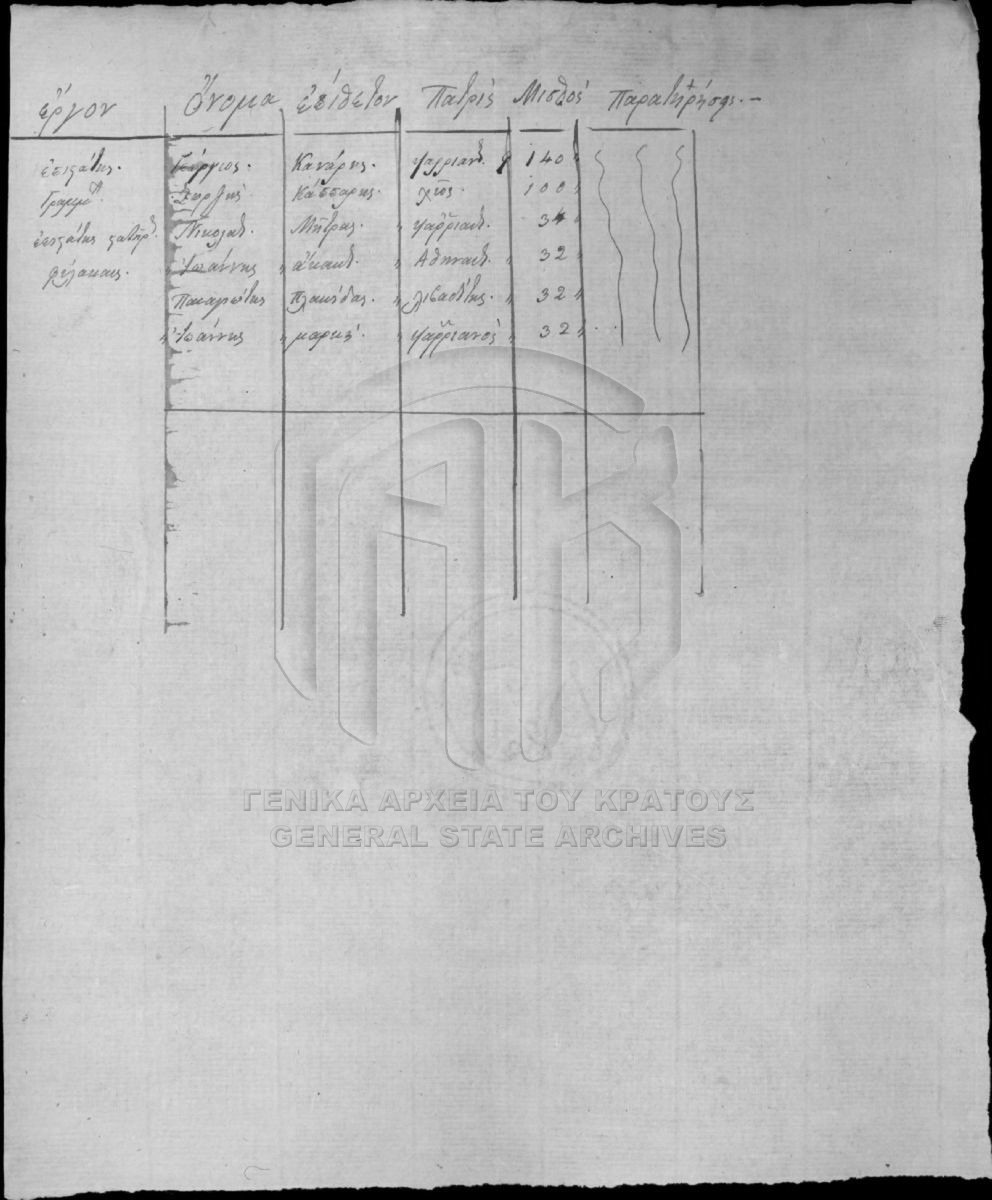 ἔργον Ὄνομα ἐπίθετον Πατρὶς Μισθὸς Παρατήρησις.–
ἐπιστάτης. Γεώργιος. Κανάρης. ψαρριαν. 140
Γραμμ. Κάππαρης. χῖος. 100
ἐπιστάτης Νικολα. Μῆτρας. ψαρριαν. 34
φύλακας. Ἰωάννης Ἀθηναι. 32
Παναγιώτης Πλακήδας. λιβαδίτης. 32
Ἰωάννης μαρκ. ψαρριανὸς 32
ΓΕΝΙΚΑ ΑΡΧΕΙΑ ΤΟΥ ΚΡΑΤΟΥΣ
GENERAL STATE ARCHIVES